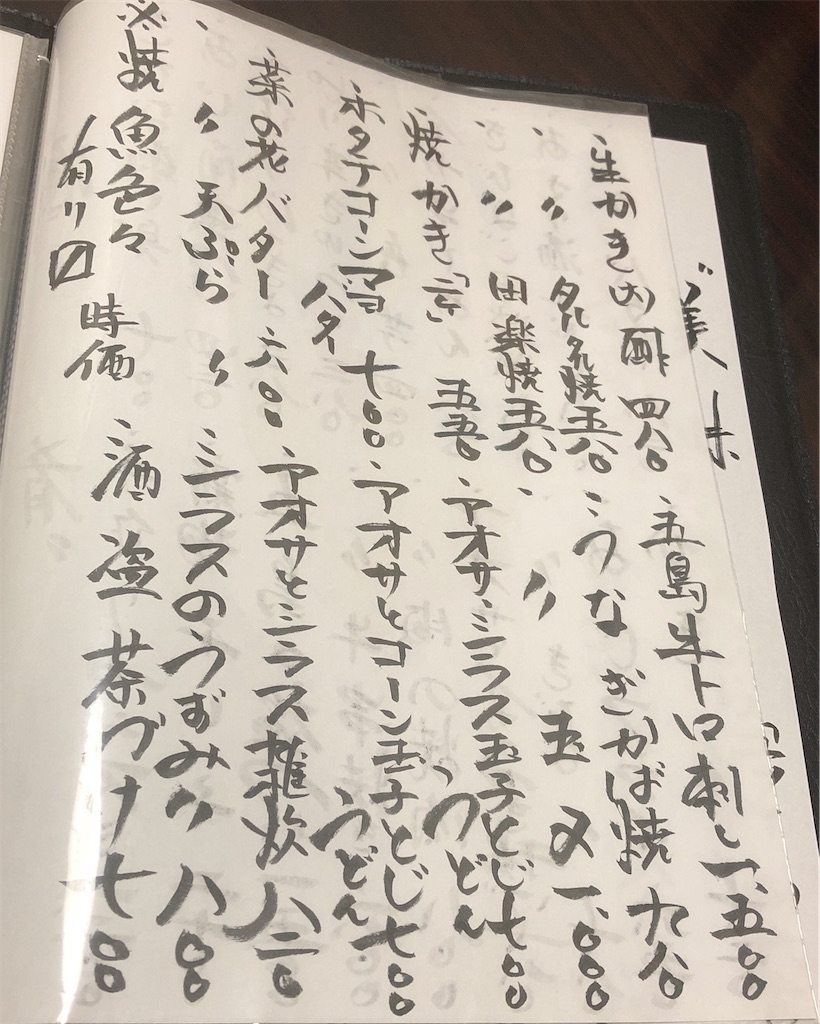 生かき 酢 四八〇
〃 タルタル焼 五八〇
〃 田楽焼 五八〇
焼かき「二ケ」 五五〇
ホタテコーンマヨ 七〇〇
バタ
菜の花バター 六〇〇
〃 天ぷら 〃
※焼魚色々 時価
有リ〼
五島牛トロ刺し 一、五〇〇
うなぎかば焼 九八〇
〃 玉〆 一、〇〇〇
アオサシラス玉子とじ 七〇〇
うどん
アオサとコーン玉子とじ 七〇〇
うどん
アオサとシラス雑炊 八二〇
シラスのうずみ〃 八〇〇
酒盗茶づけ 七〇〇
味